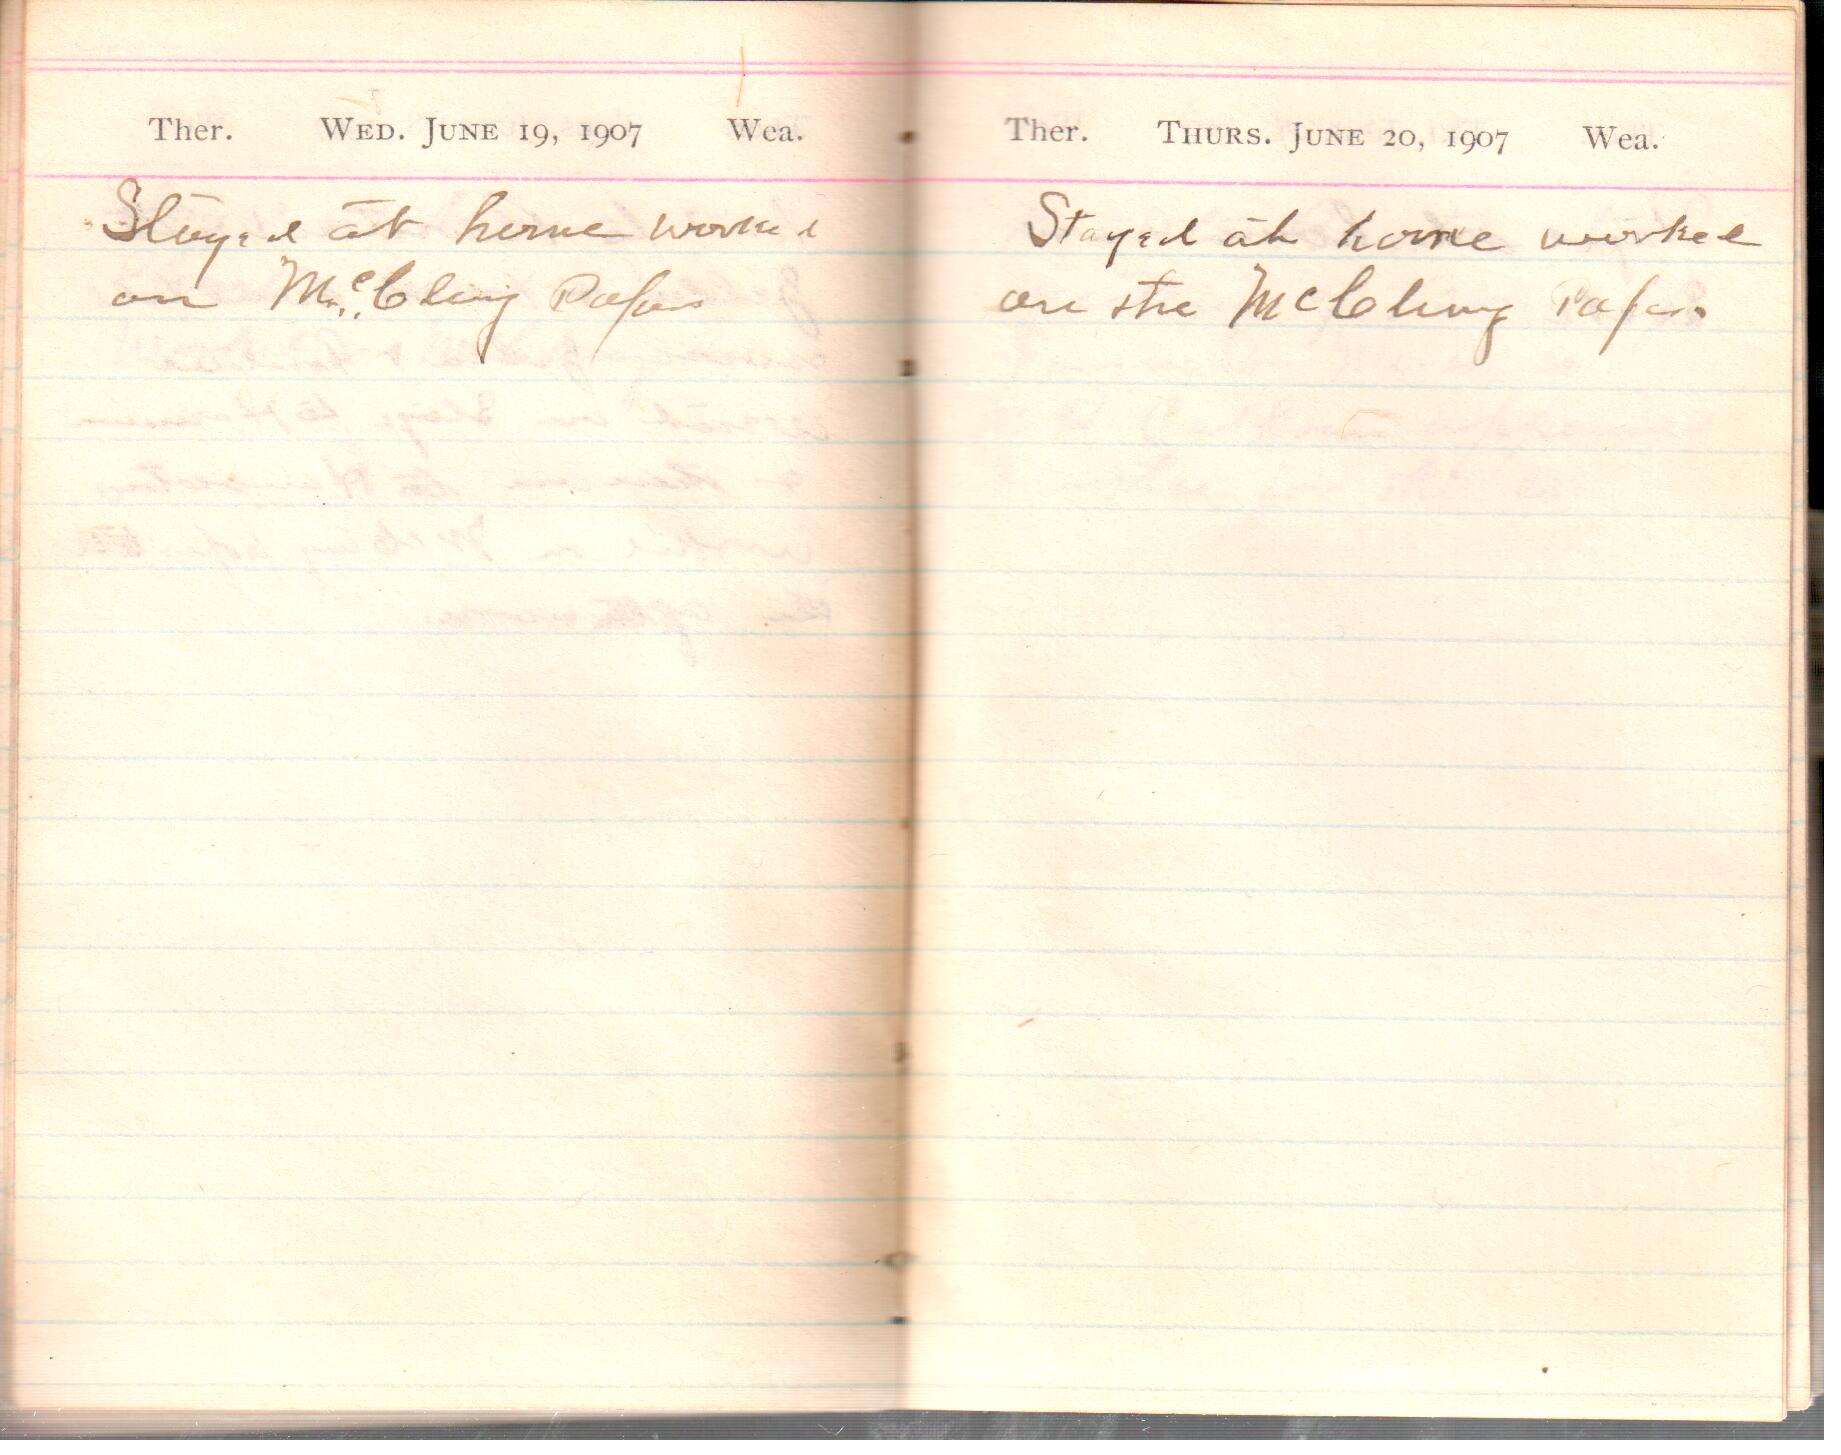 Ther. WED. JUNE 19, 1907 Wea.
Stayed at home worked
on McClung Papers
Ther. THURS. JUNE 20, 1907 Wea.
Stayed at home worked
on the McClung Papers